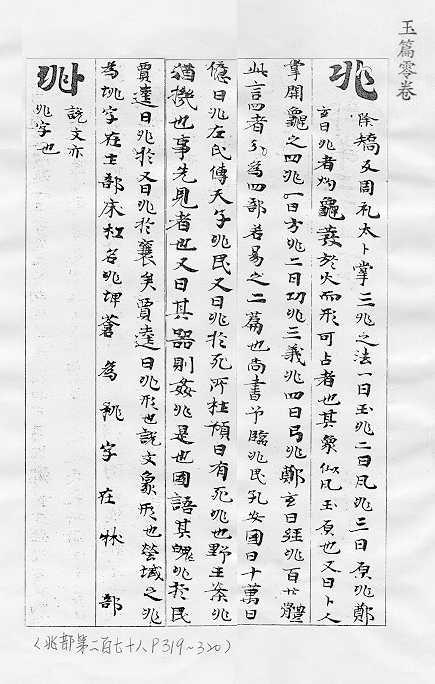 玉篇零卷
兆 除矯反周礼太卜掌三兆之法一曰玉兆二曰凡兆三曰原兆鄭
玄曰兆者灼龜發於火而形可占者也其象似凡玉原也又曰卜人
掌開龜之四兆一曰方兆二曰功兆三義兆四曰弓兆鄭玄曰經兆百廿體
此言四者分為四部若易之二篇也尚書予臨兆民孔安國曰十萬曰
億曰兆左氏傳天子兆民又曰兆於死所杜預曰有死兆也野王案兆
猶機也事先見者也又曰其器則姦兆是也國語其魄兆於民
賈逵曰兆於又曰兆於襄矣賈逵曰兆形也說文象形也塋域之兆
為垗字在土部床杠名兆埤蒼為字在牀部
𠧞 說文亦
兆字也
(兆部第二百七十八 P319~320)